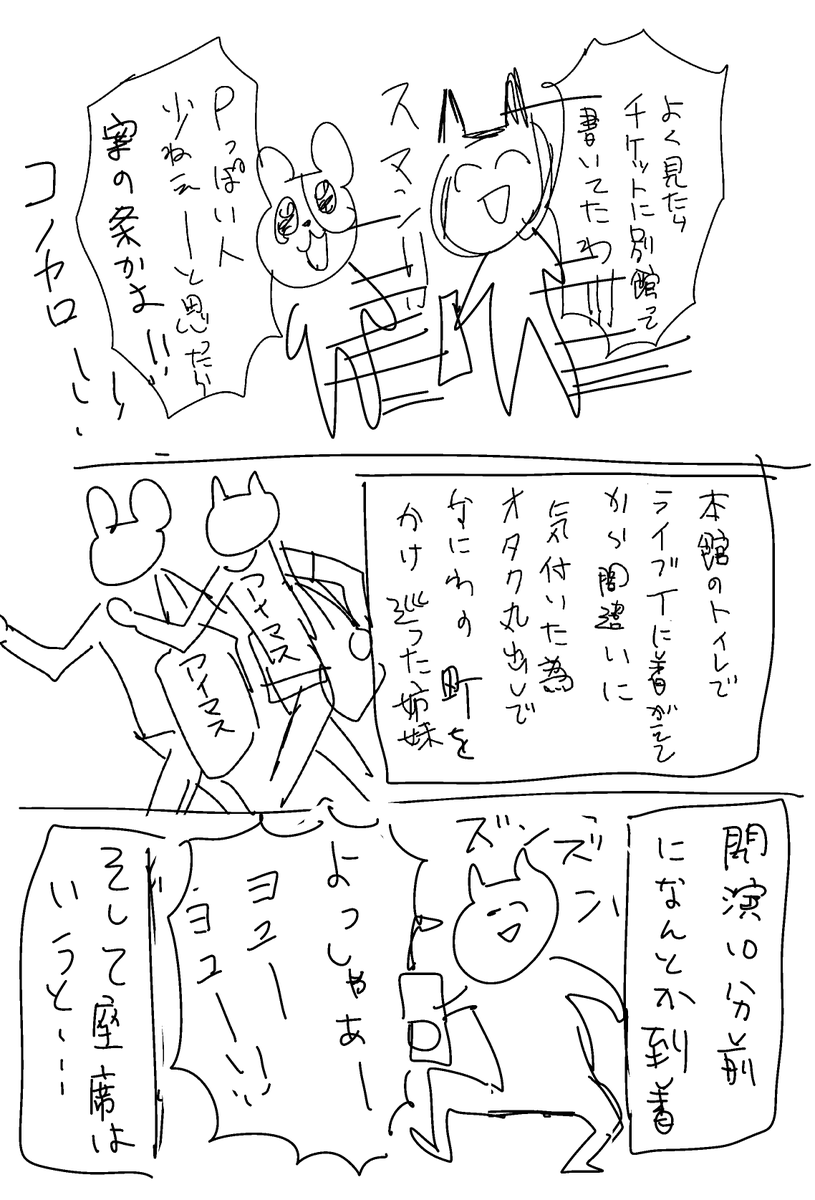 よく見たら
チケットに別館って
書いてたわ!!!
スマン!!
Pっぽい人
少ねェーと思ったら
案の条かよ!!
コノヤロー…
本館のトイレで
ライブTに着がえて
から間違いに
気付いた為
オタク丸出しで
なにわの町を
かけ巡った姉妹
アイマス
アイマス
開演10分前
になんとか到着
ズンズン
よっしゃあー
ヨユー
ヨユー!!
そして座席は
いうと…